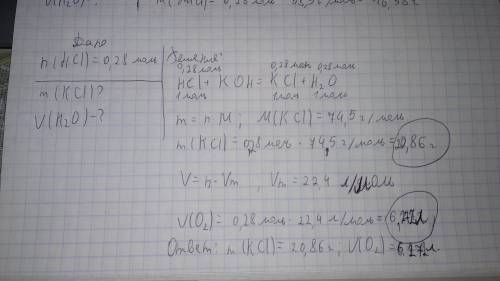 V(H₂O)-? m(HCl)=0,28 моль
Дано
n(HCl)=0,28 моль
m(KCl)?
V(H₂O)-?
Решение:
0,28 моль 0,28 моль 0,28 моль
HCl + KOH = KCl + H₂O
1 моль 1 моль 1 моль
m=n·M; M(KCl)=74,5 г/моль
m(KCl)=0,28 моль · 74,5 г/моль=20,86 г
V=n·Vm, Vm=22,4 л/моль
V(O₂)=0,28 моль · 22,4 л/моль=6,272л
Ответ: m(KCl)=20,86 г; V(O₂)=6,272л